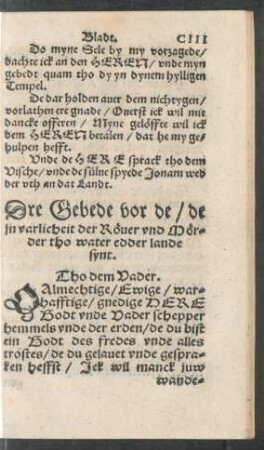 Bladt. CIII
Do myne Sele by my vorzagede/
dachte ick an den HEREN/ vnde myn
gebedt quam tho dy yn dynem hylligen
Tempel.
De dar holden auer dem nichtygen/
vorlathen ere gnade/ Ouerst ick wil mit
dancke offeren/ Myne gelöffte wil ick
dem HEREN betalen/ dat he my ge-
hulpen hefft.
Vnde de HERE sprack tho dem
Vische/ vnde de sülue spyede Jonam wed
der vth an dat Landt.
Dre Gebede vor de/ de
jn varlicheit der Röuer vnd Mör-
der tho water edder lande
synt.
Tho dem Vader.
O Almechtige/ Ewige/ war-
hafftige/ gnedige HERE
Godt vnde Vader schepper
hemmels vnde der erden/ de du bist
ein Godt des fredes vnde alles
trostes/ de du gelauet vnde gespra-
ken heffst/ Ick wil manck juw
wande-